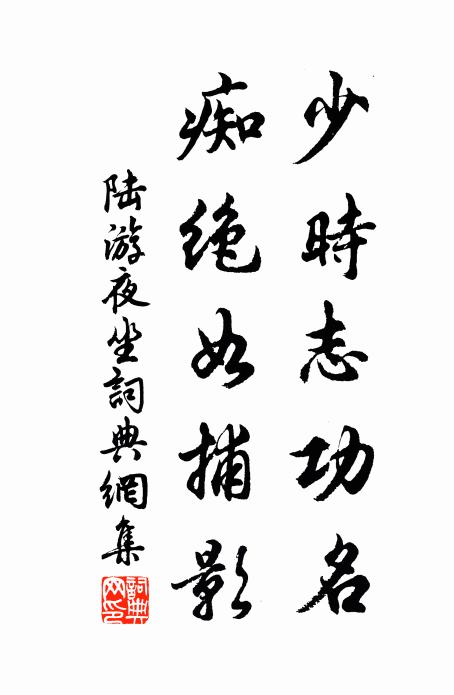 少時志功名
痴絶如捕影
陆游夜坐詞典網集
詞典
网印